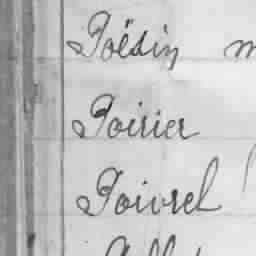 Poësin m
Poirier
Poivrel